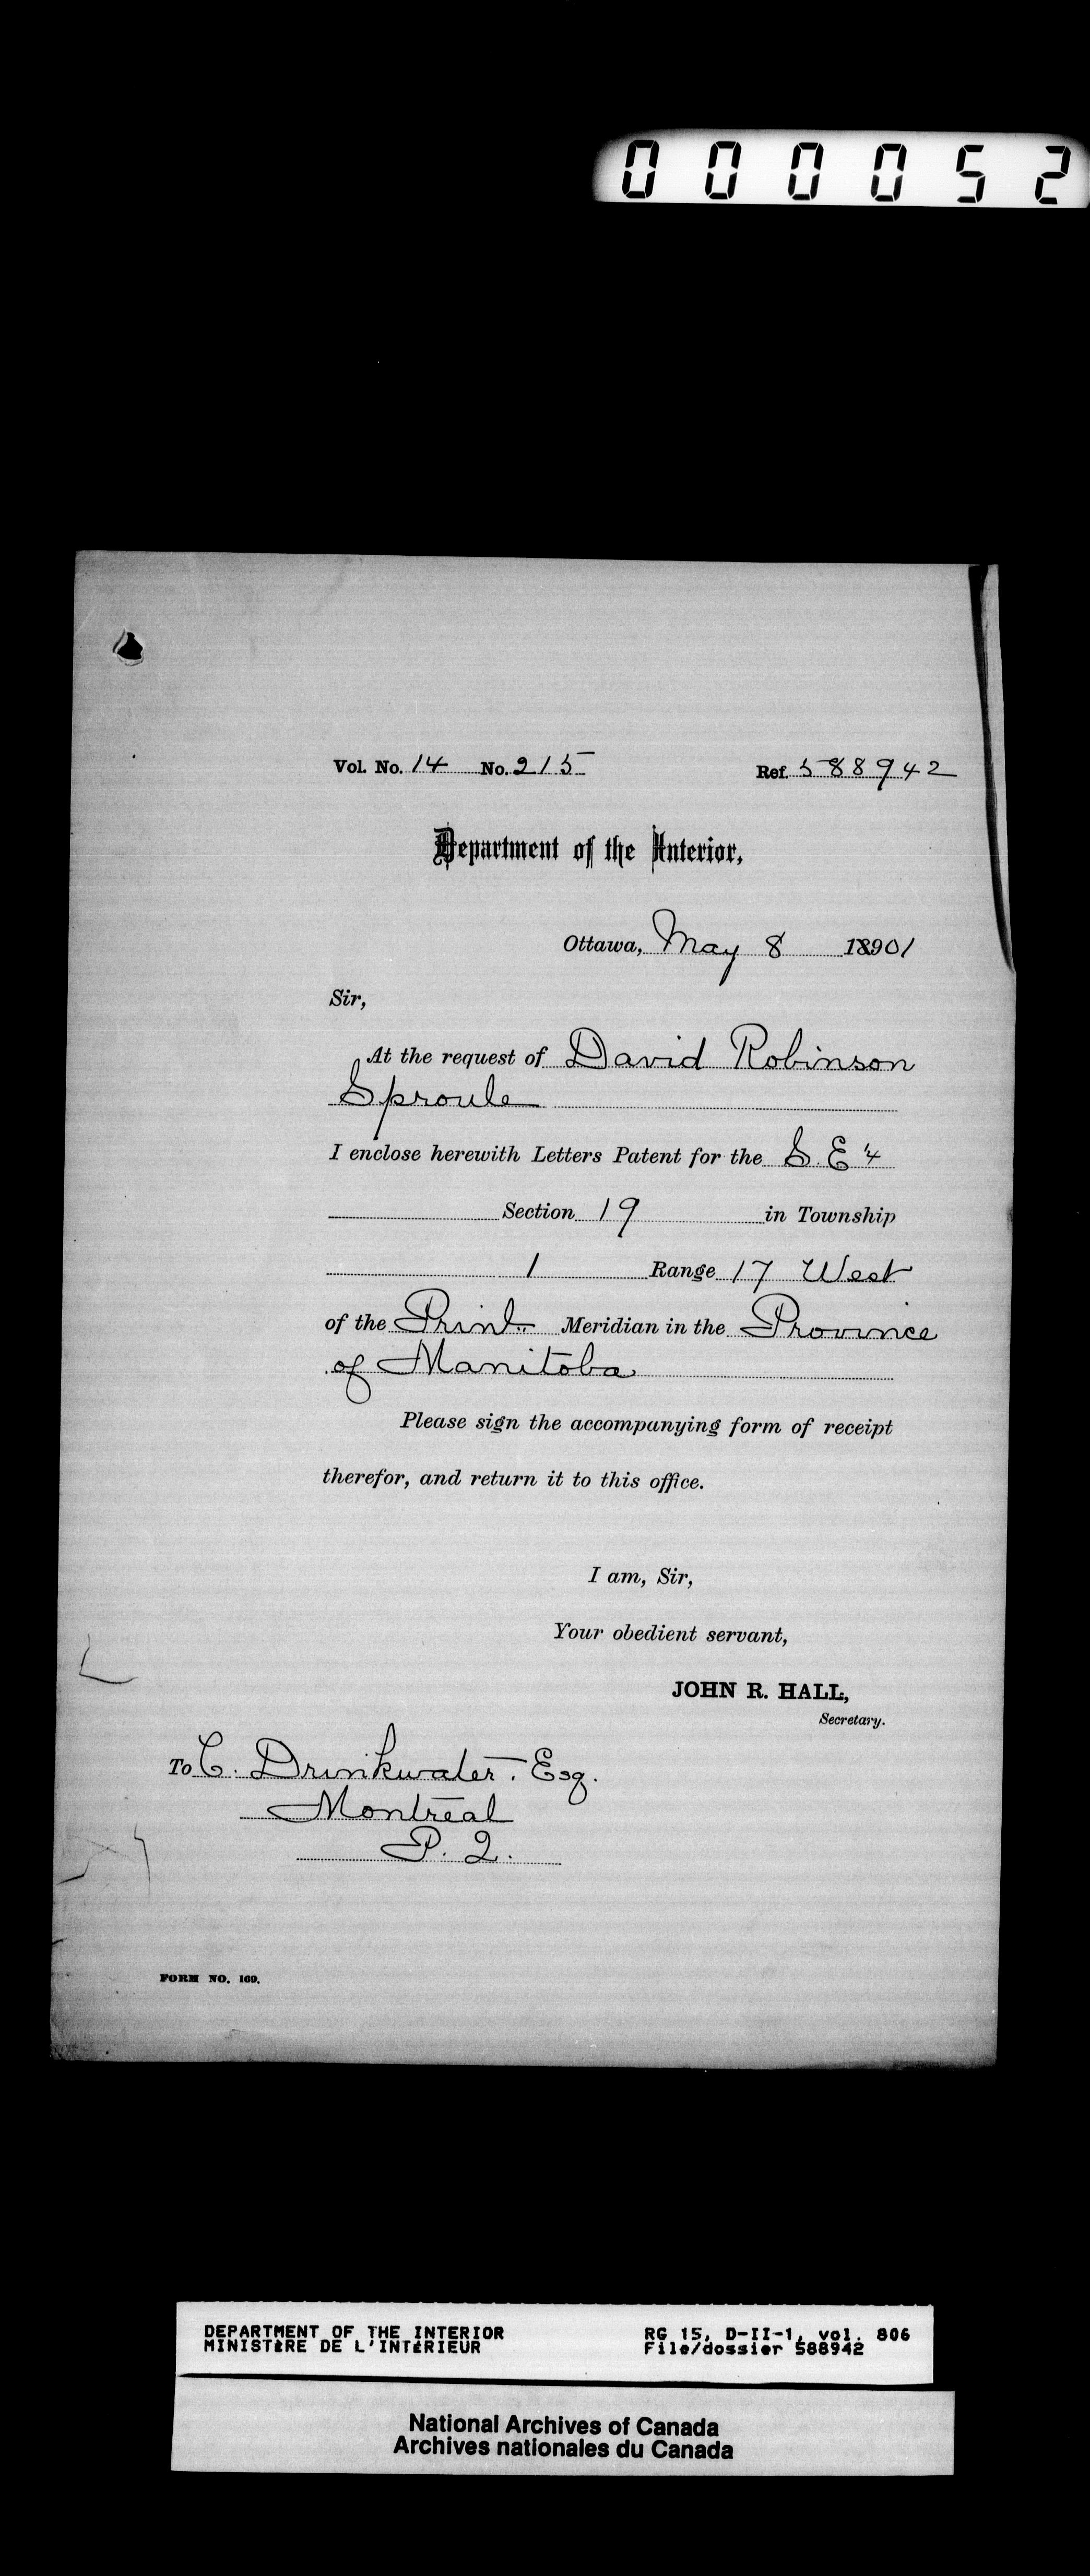 000052
Vol. No. 14 No. 215 Ref. 588942
Department of the Interior,
Ottawa, May 8 18901
Sir,
At the request of David Robinson
Sproule
I enclose herewith Letters Patent for the S. E 1/4
Section 19 in Township
1 Range 17 West
of the Prinl. Meridian in the Province
of Manitoba
Please sign the accompanying form of receipt
therefor, and return it to this office.
I am, Sir,
Your obedient servant,
JOHN R. HALL,
Secretary.
To C. Drinkwater. Esq.
Montreal
P. Q.
FORM NO. 169.
DEPARTMENT OF THE INTERIOR RG 15, D-II-1, vol. 806
MINISTÈRE DE L'INTÉRIEUR File/dossier 588942
National Archives of Canada
Archives nationales du Canada